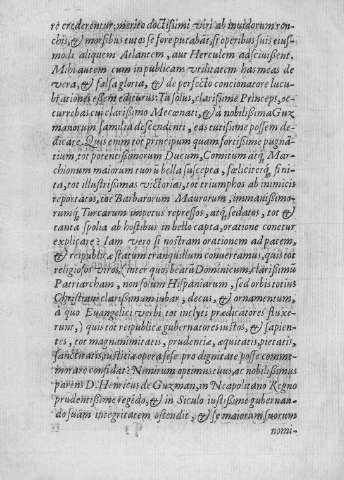 rò crederentur, merito doctissimi viri ab inuidorum ron-
chis, & morsibus tutos se fore putabãt, si operibus suis eius-
modi aliquem Atlantem, aut Herculem adsciuissent.
Mihi autem cum in publicam vtilitatem has meas de
vera, & falsa gloria, & de perfecto concionatore lucu-
brationes essem editurus: Tu solus, clarissime Princeps, oc-
currebas cui clarissimo Mecœnati, & à nobilissima Guz
manorum familia descendenti, eas tutissime possem de-
dicare. Quis enim tot principum quam fortissime pugnã-
tium, tot potentissimorum Ducum, Comitum atq; Mar-
chionum maiorum tuorũ bella suscepta, fœliciterq; fini-
ta, tot illustrissimas victorias, tot triumphos ab inimicis
reportatos, tot Barbarorum Maurorum, immanissimo-
rumq; Turcarum impetus repressos, atq; sedatos, tot &
tanta spolia ab hostibus in bello capta, oratione conetur
explicare? Iam vero si nostram orationem ad pacem,
& reipublicæ statum tranquillum conuertamus, quis tot
religiosos viros, (inter quos beatũ Dominicum, clarissimũ
Patriarcham, non solum Hispaniarum, sed orbis totius
Christiani clarissimum iubar, decus, & ornamentum,
à quo Euangelici verbi tot inclyti prædicatores fluxe-
runt,) quis tot reipublicæ gubernatores iustos, & sapien-
tes, tot magnanimitatis, prudentiæ, æquitatis, pietatis,
sanctitatis, iustitiæ opera sese pro dignitate posse comme
morare confidat? Nimirum optimus tuus, ac nobilissimus
parens D. Henricus de Guzman, in Neapolitano Regno
prudentissime regẽdo, & in Siculo iustissime gubernan-
do suam integritatem ostendit, & se maiorum suorum
nomi-